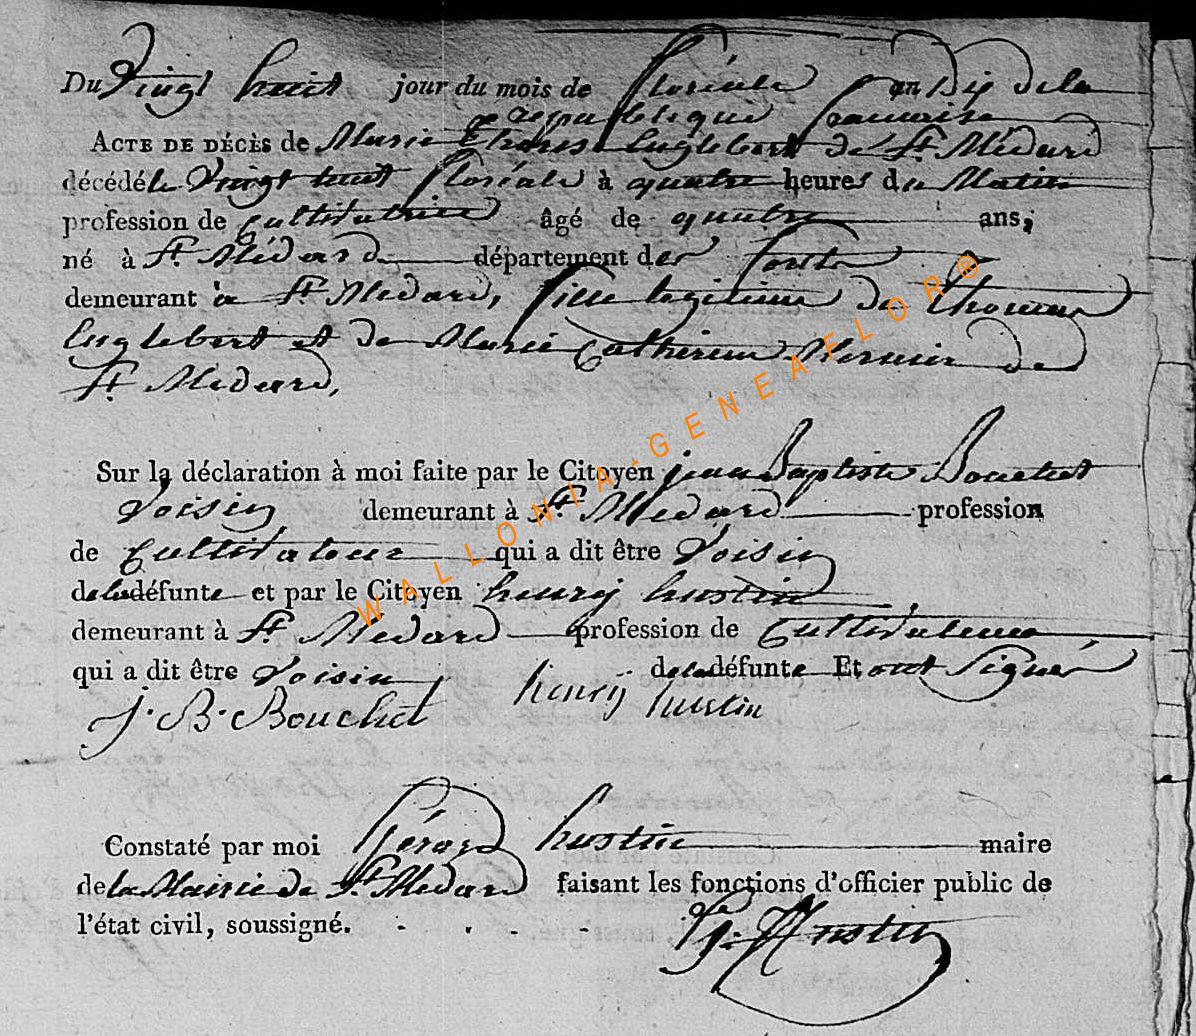 Du Vingt huit jour du mois de floréale an Dix de la
republique francaise
ACTE DE DÉCÈS de Marie Englebert de St. Médard
décédé le Vingt huit floréale à quatre heures du Matin
profession de Cultivatrice âgé de quatre ans,
né à St. Médard département des forêts
demeurant à St. Médard, fille legitime de thomas
Englebert et de Marie Catherine de
St. Médard,
Sur la déclaration à moi faite par le Citoyen jean Baptiste Bouchet
Voisin demeurant à St. Médard profession
de Cultivateur qui a dit être Voisin
de la défunte et par le Citoyen henry hustin,
demeurant à St. Médard profession de Cultivateur,
qui a dit être Voisin de la défunte Et ont Signés
J. B. Bouchet henry hustin
Constaté par moi Gérard hustin maire
de la Mairie de St. Médard faisant les fonctions d'officier public de
l'état civil, soussigné.
G. Hustin
WALLONIA-GENEAFLOR®